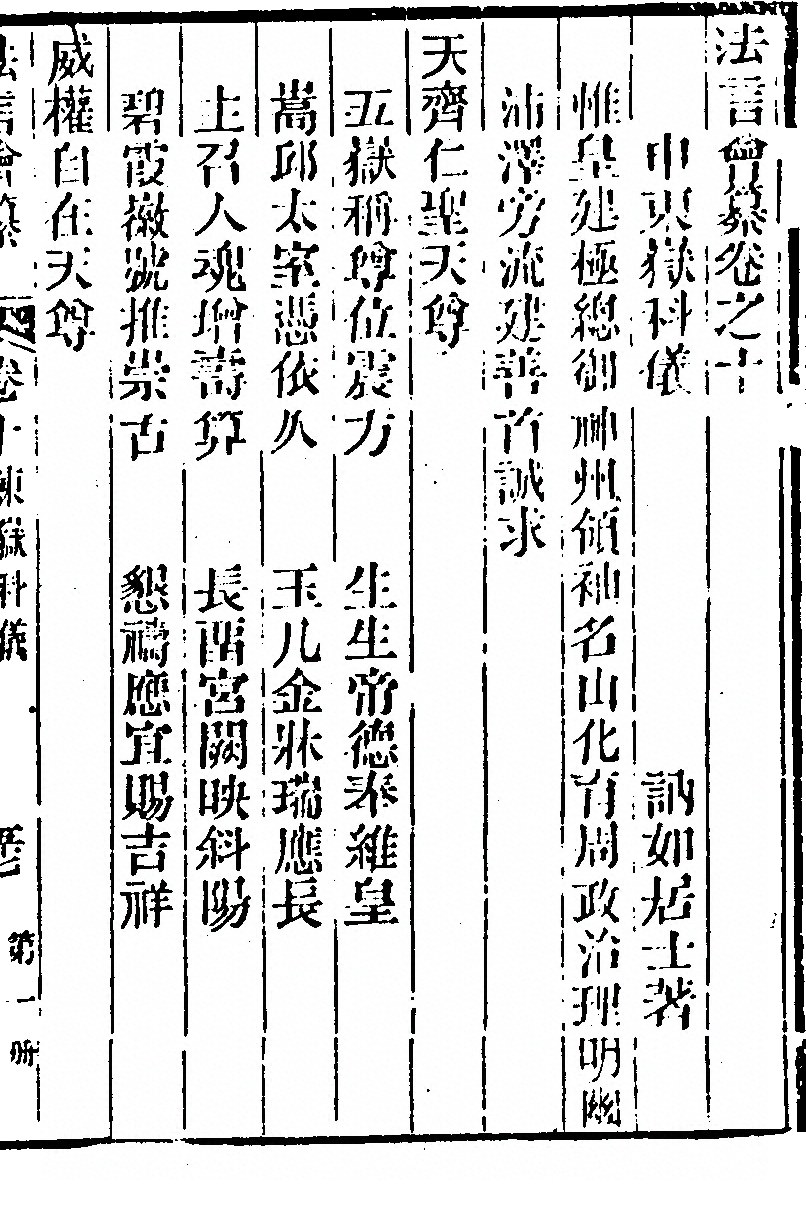 法言會纂卷之十
申東嶽科儀 訥如居士著
惟皇建極總御神州領袖名山化育周政治理明幽
沛澤旁流建善首誠求
天齊仁聖天尊
五嶽稱尊位震方 生生帝德奉維皇
嵩邱太室憑依久 玉几金牀瑞應長
主召人魂增壽算 長畱宮闕映斜陽
碧霞徽號推崇古 懇禱應宜賜吉祥
威權自在天尊
法言會纂 卷十東嶽科儀 第一冊